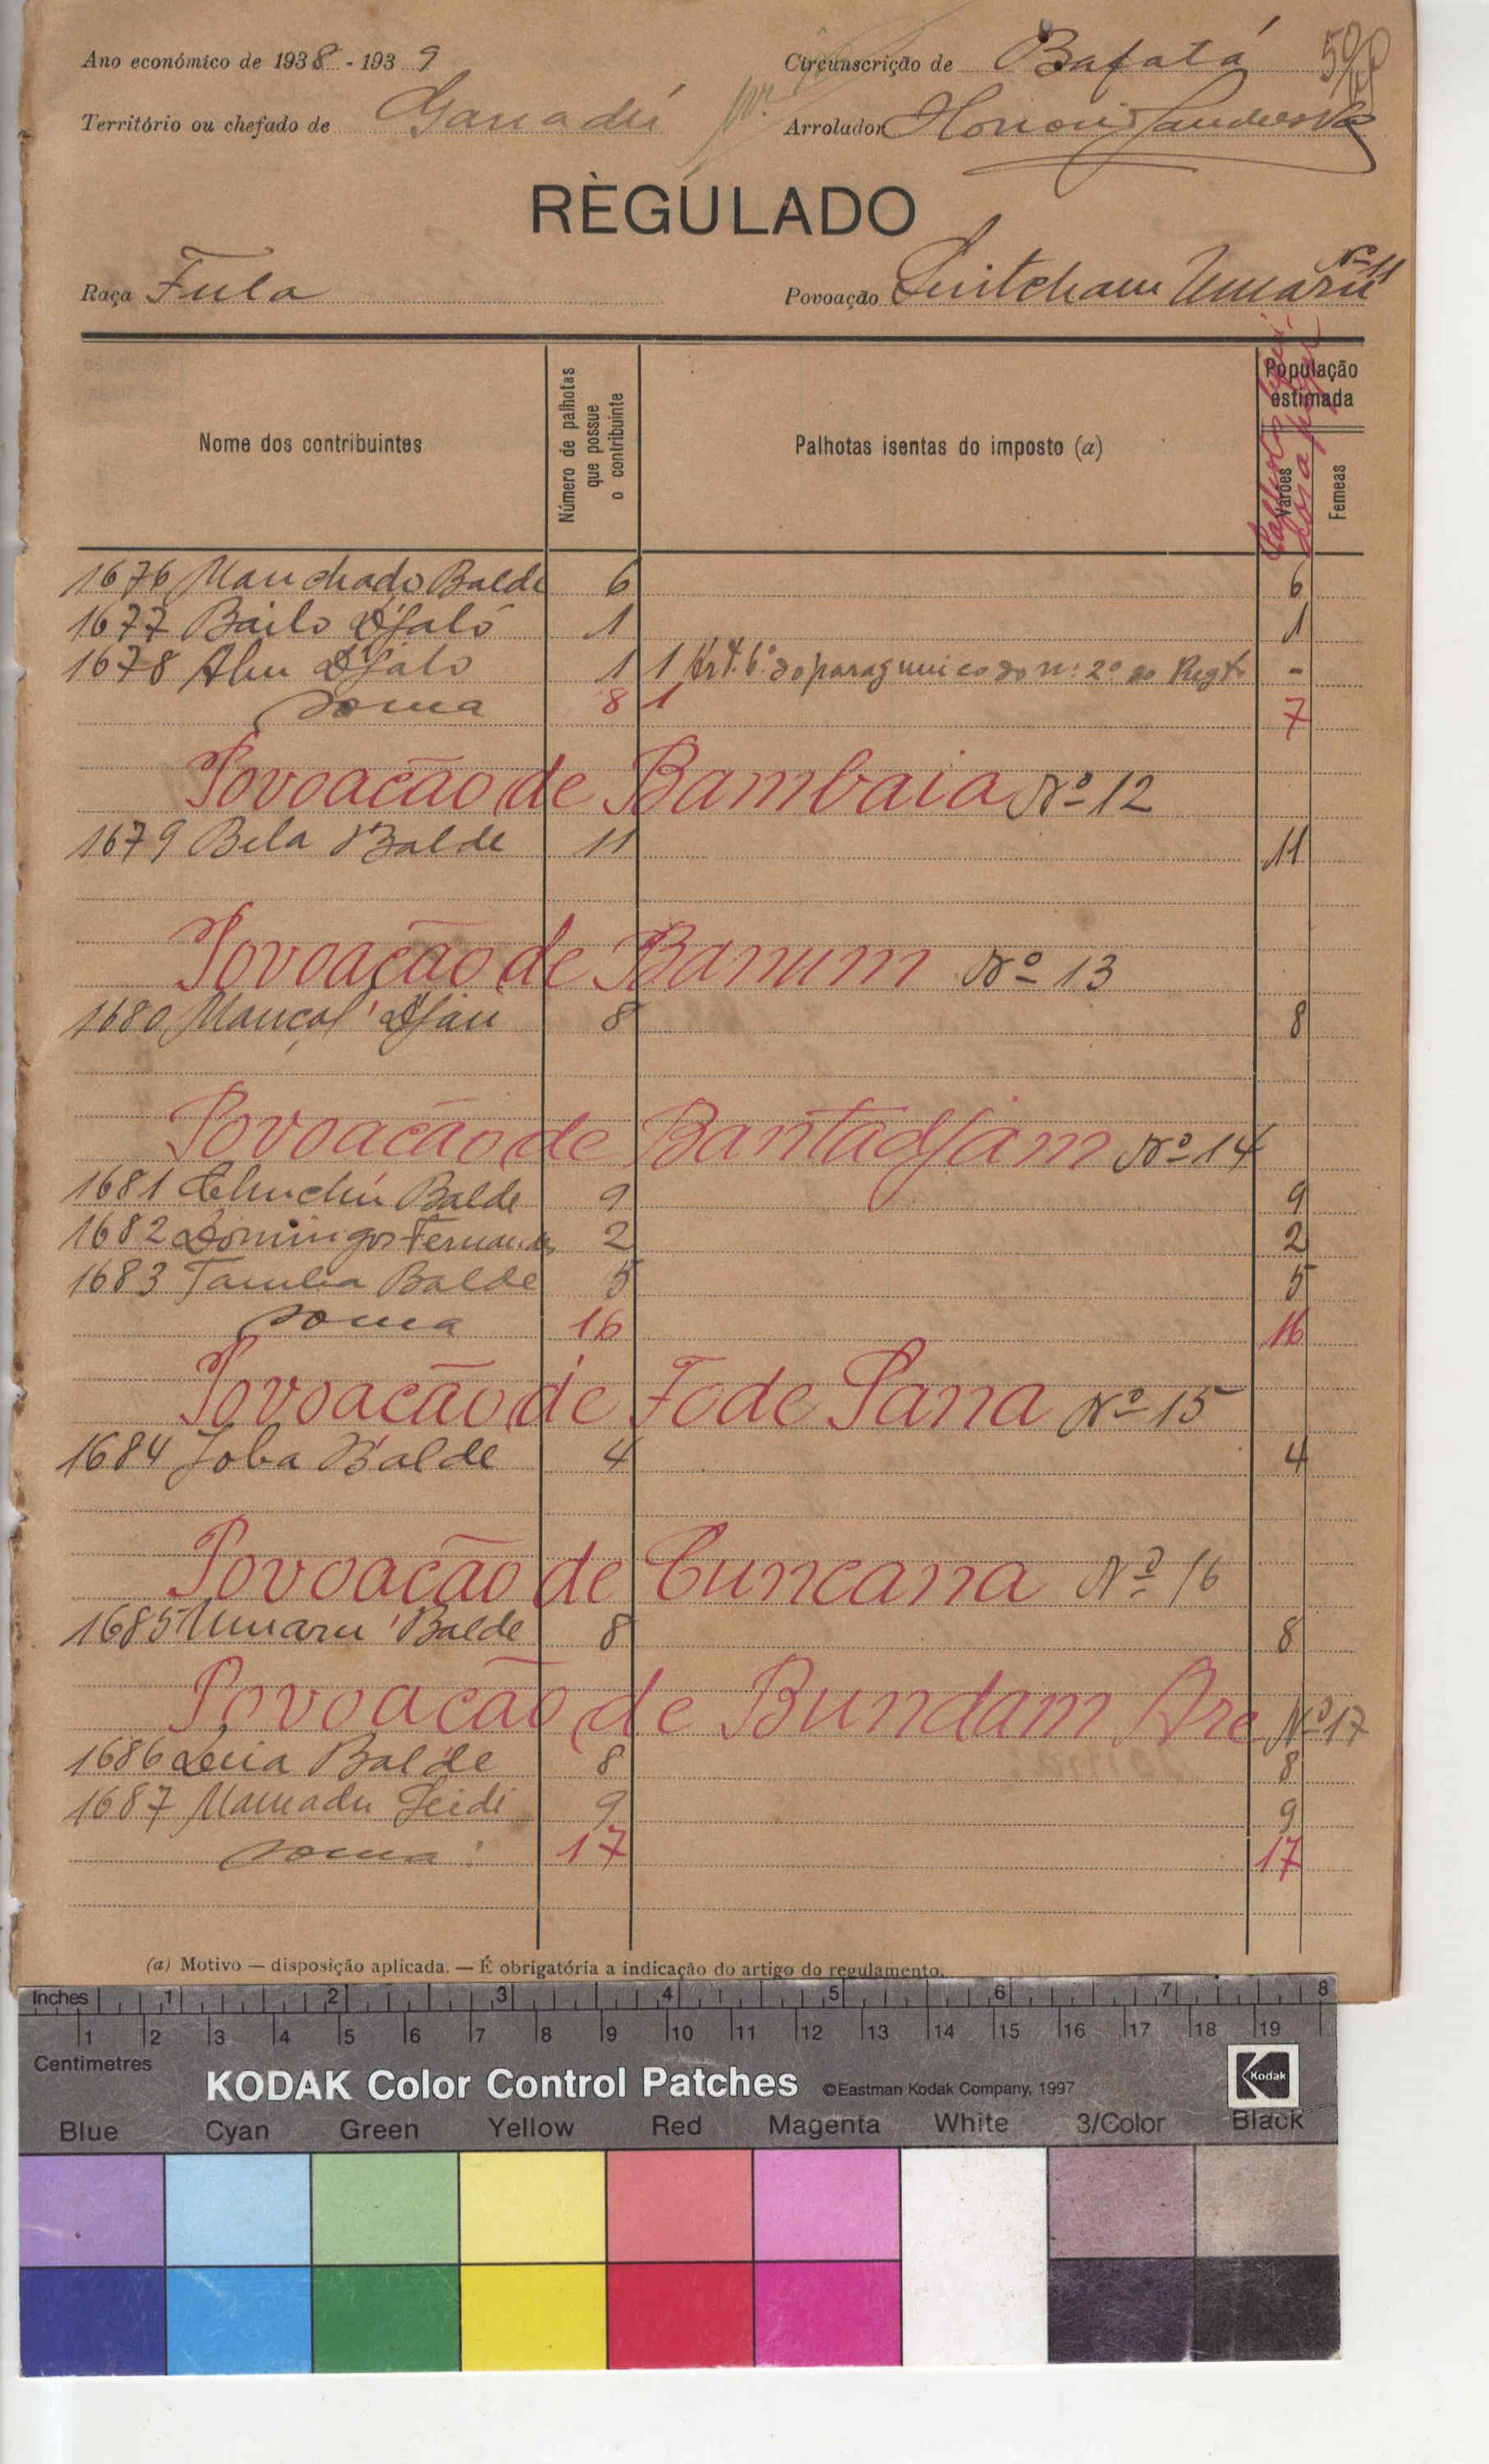 Ano económico de 1938 - 1939 Circunscrição de Bafatá
Território ou chefado de Ganadú Arrolador
RÈGULADO
Raça Fula Povoação Umarú Nº 11
Nome dos contribuintes
Número de palhotas que possue o contribuinte
Palhotas isentas do imposto (a)
População estimada
Varões
Femeas
1676 Manchado Balde 6 6
1677 Bailo Djaló 1 1
1678 Aliu Djalo 1 1 Art. 6.º do parag unico do nº 2º do Regt. -
Soma 8 1 7
Povoacão de Bambaia Nº 12
1679 Bela Balde 11 11
Povoação de Banum Nº 13
1680 Mançal Djau 8 8
Povoacão de Bantadjam Nº 14
1681 Chuchú Balde 9 9
1682 Domingos Fernandes 2 2
1683 Tamba Balde 5 5
Soma 16 16
Povoacão de Fode Sana Nº 15
1684 Joba Balde 4 4
Povoacão de Cuncana Nº 16
1685 Umaru Balde 8 8
Povoacão de Bundam Are Nº 17
1686 Balde 8 8
1687 Mamadu Seidi 9 9
Soma: 17 17
(a) Motivo — disposição aplicada. — É obrigatória a indicação do artigo do regulamento.
Inches 1 2 3 4 5 6 7 8
1 2 3 4 5 6 7 8 9 10 11 12 13 14 15 16 17 18 19
Centimetres
KODAK Color Control Patches ©Eastman Kodak Company, 1997 Kodak
Blue Cyan Green Yellow Red Magenta White 3/Color Black